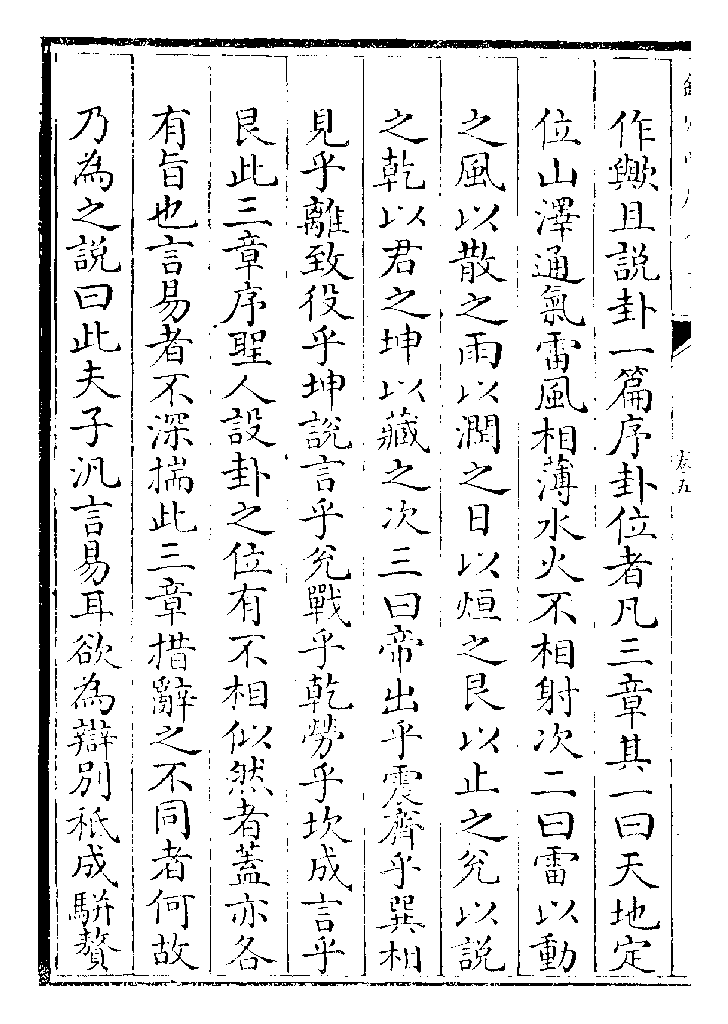 卷五
作歟且說卦一篇序卦位者凡三章其一曰天地定
位山澤通氣雷風相薄水火不相射次二曰雷以動
之風以散之雨以潤之日以烜之艮以止之兊以說
之乾以君之坤以藏之次三曰帝出乎震齊乎巽相
見乎離致役乎坤說言乎兊戰乎乾勞乎坎成言乎
艮此三章序聖人設卦之位有不相似然者蓋亦各
有旨也言易者不深揣此三章措辭之不同者何故
乃為之說曰此夫子汎言易耳欲為辯別秖成駢贅